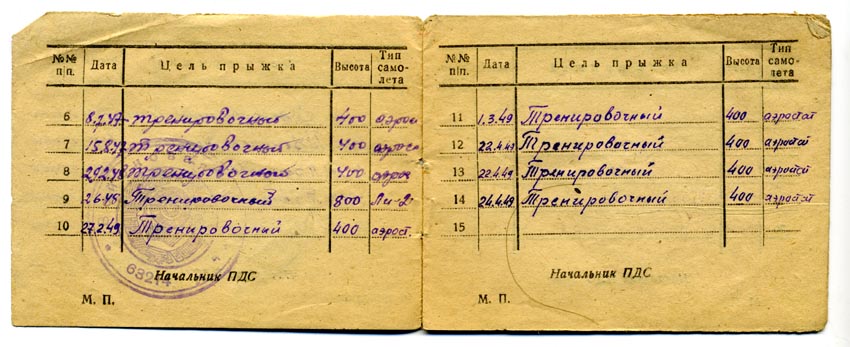 №№ п/п. Дата Цель прыжка Высота Тип само-лета
6 8.2.47 тренировочный 400 аэрос
7 15.8.47 тренировочный 400 аэрос
8 29.2.48 тренировочный 400 аэрос
9 2.6.48 Тренировочный 800 Ли-2
10 27.2.49 Тренировочний 400 аэрост.
Начальник ПДС
М. П.
68214
№№ п/п. Дата Цель прыжка Высота Тип само-лета
11 1.3.49 Тренировочный 400 аэростат
12 22.4.49 Тренировочный 400 аэростат
13 22.4.49 Тренировочный 400 аэростат
14 24.4.49 Тренировочный 400 аэростат
15
Начальник ПДС
М. П.